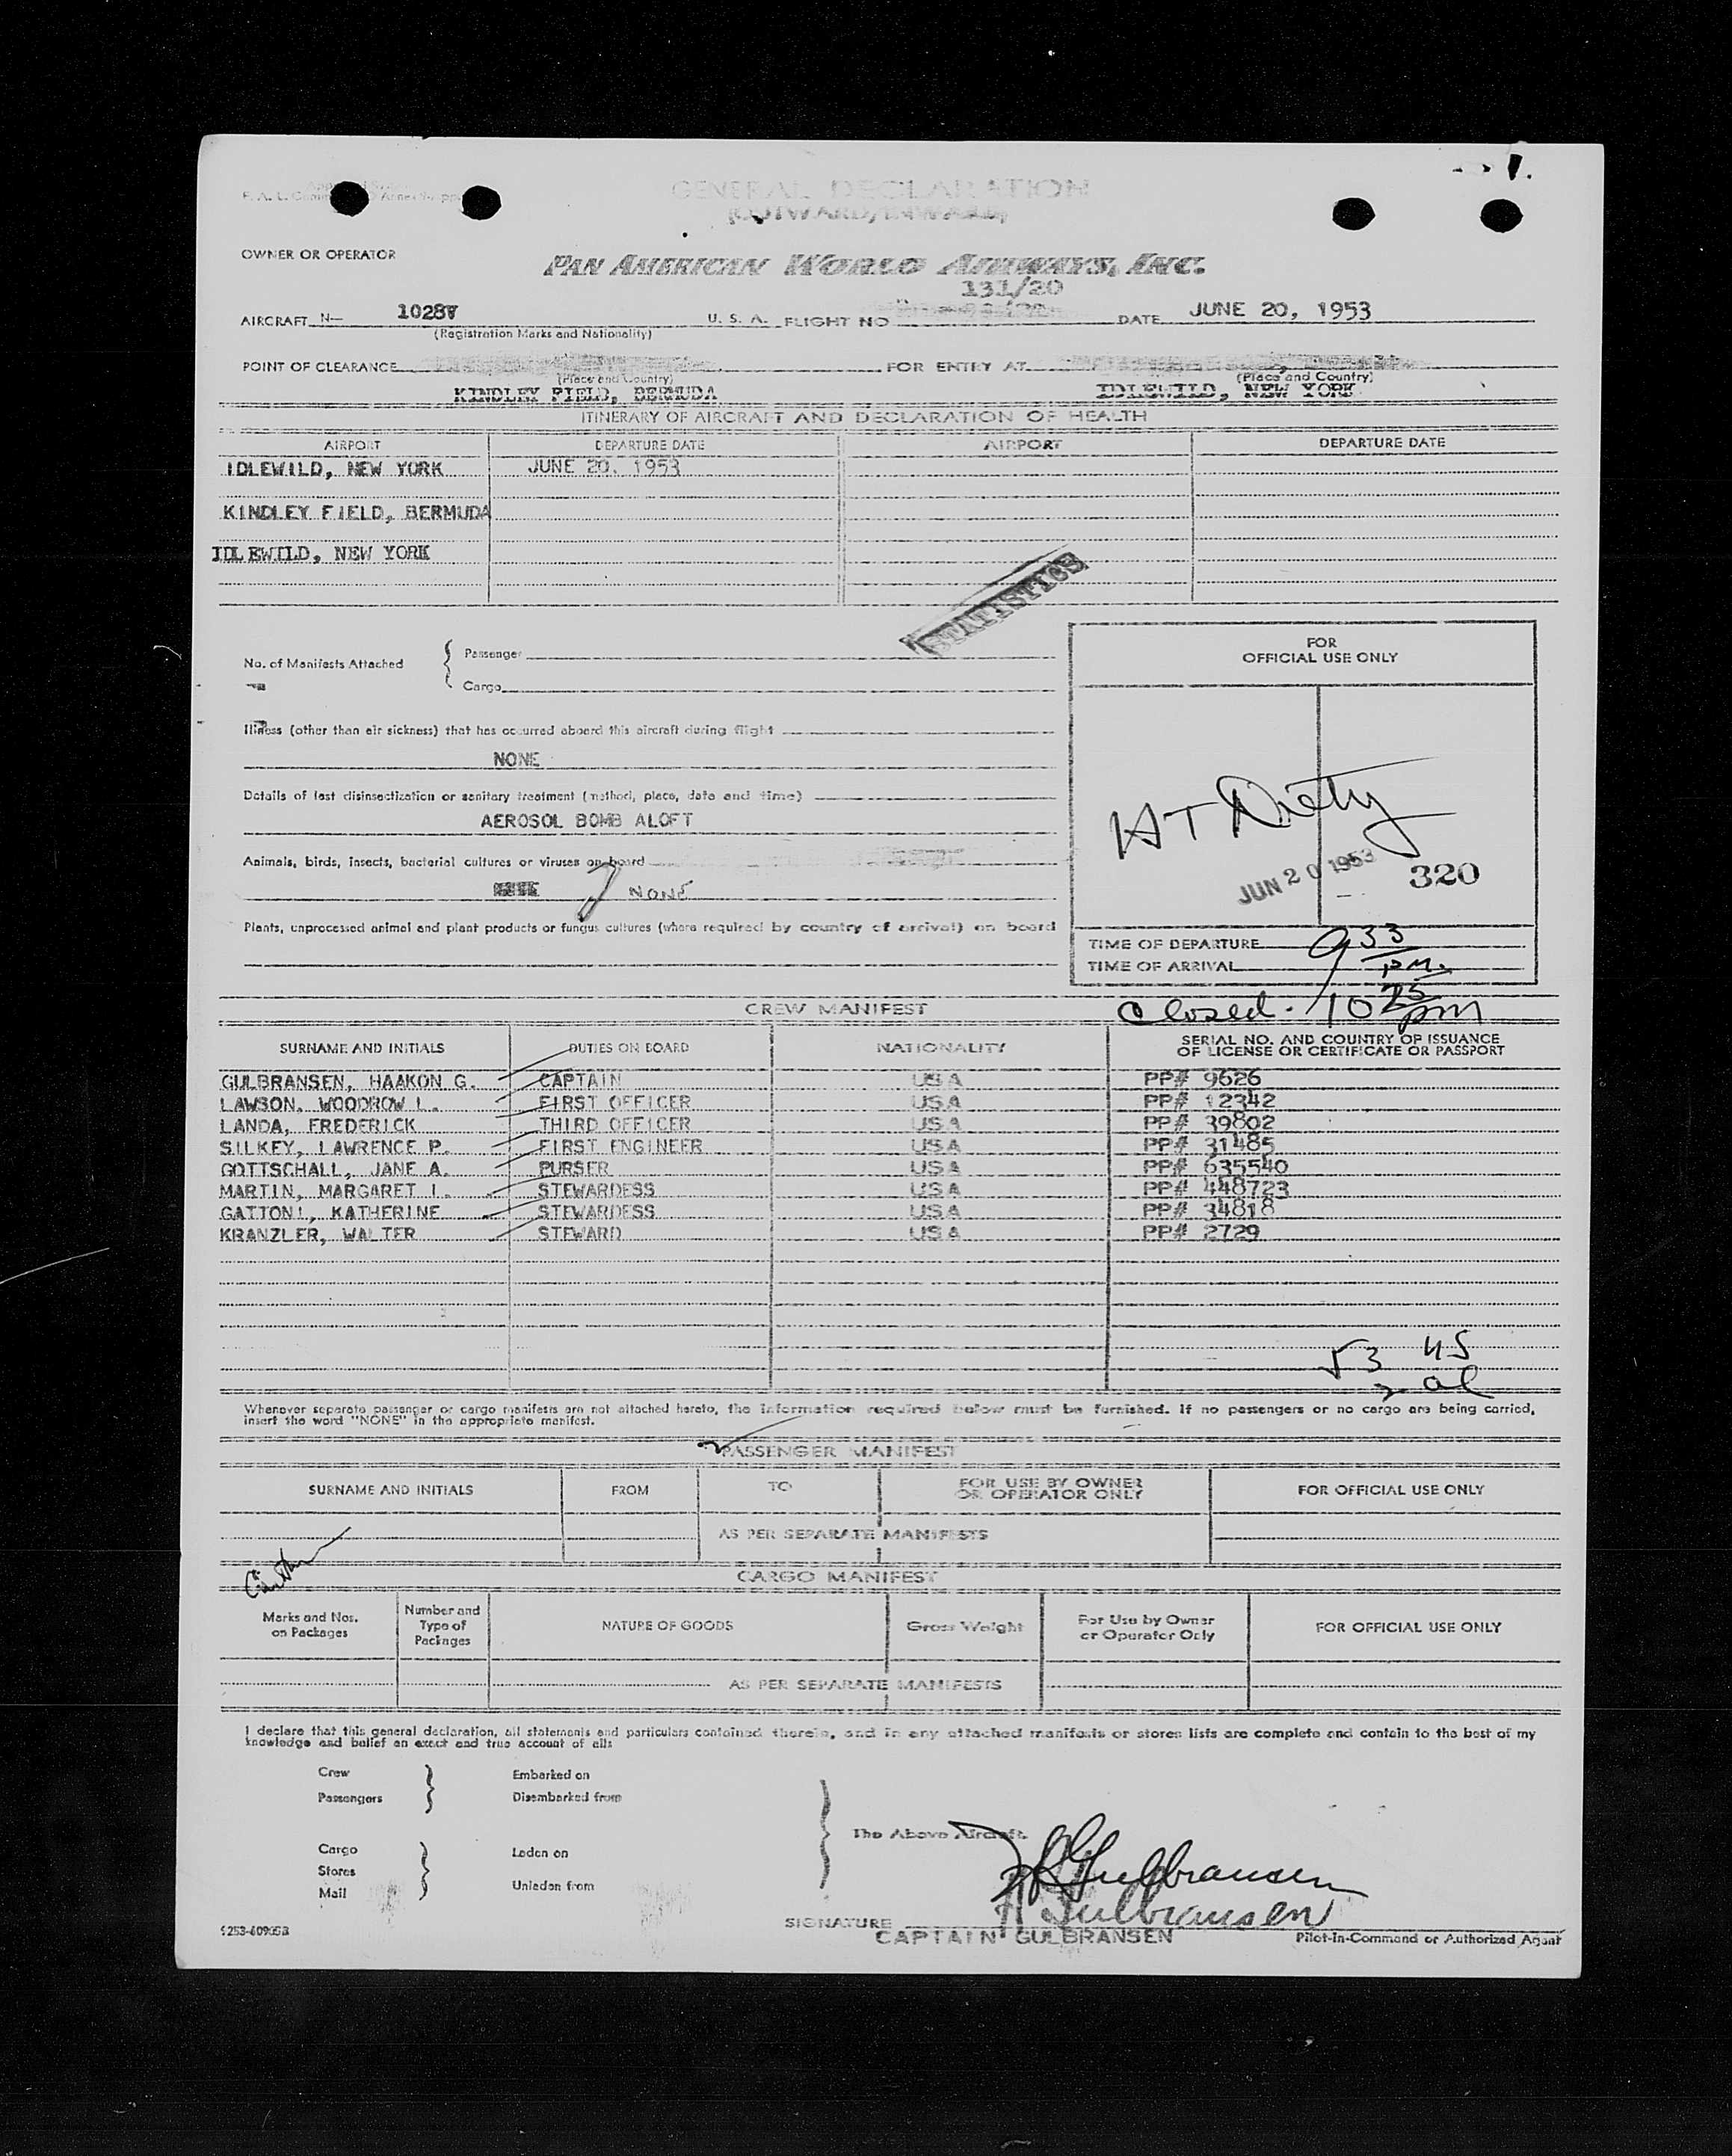 GENERAL DECLARATION
(OUTWARD/INWARD)
OWNER OR OPERATOR
PAN AMERICAN WORLD AIRWAYS, INC.
131/20
AIRCRAFT N— 1028V U. S. A. FLIGHT NO DATE JUNE 20, 1953
(Registration Marks and Nationality)
POINT OF CLEARANCE FOR ENTRY AT
(Place and Country) (Place and Country)
KINDLEY FIELD, BERMUDA IDLEWILD, NEW YORK
ITINERARY OF AIRCRAFT AND DECLARATION OF HEALTH
AIRPORT DEPARTURE DATE AIRPORT DEPARTURE DATE
IDLEWILD, NEW YORK JUNE 20, 1953
KINDLEY FIELD, BERMUDA
IDLEWILD, NEW YORK
STATISTICS
No. of Manifests Attached { Passenger
Cargo
FOR
OFFICIAL USE ONLY
Illness (other than air sickness) that has occurred aboard this aircraft during flight
NONE
Details of last disinsectization or sanitary treatment (method, place, date and time)
AEROSOL BOMB ALOFT
Animals, birds, insects, bacterial cultures or viruses on board
NONE
JUN 20 1953 320
Plants, unprocessed animal and plant products or fungus cultures (where required by country of arrival) on board
TIME OF DEPARTURE 933
TIME OF ARRIVAL PM.
Closed. 10 25 pm
CREW MANIFEST
SURNAME AND INITIALS DUTIES ON BOARD NATIONALITY SERIAL NO. AND COUNTRY OF ISSUANCE
OF LICENSE OR CERTIFICATE OR PASSPORT
GULBRANSEN, HAAKON G. CAPTAIN USA PP# 9626
LAWSON, WOODROW L. FIRST OFFICER USA PP# 12342
LANDA, FREDERICK THIRD OFFICER USA PP# 39802
SILKEY, LAWRENCE P. FIRST ENGINEER USA PP# 31485
GOTTSCHALL, JANE A. PURSER USA PP# 635540
MARTIN, MARGARET I. STEWARDESS USA PP# 448723
GATTONI, KATHERINE STEWARDESS USA PP# 34818
KRANZLER, WALTER STEWARD USA PP# 2729
53 US
2 al
Whenever separate passenger or cargo manifests are not attached hereto, the information required below must be furnished. If no passengers or no cargo are being carried,
insert the word "NONE" in the appropriate manifest.
PASSENGER MANIFEST
SURNAME AND INITIALS FROM TO FOR USE BY OWNER
OR OPERATOR ONLY FOR OFFICIAL USE ONLY
AS PER SEPARATE MANIFESTS
CARGO MANIFEST
Marks and Nos.
on Packages Number and
Type of
Packages NATURE OF GOODS Gross Weight For Use by Owner
or Operator Only FOR OFFICIAL USE ONLY
AS PER SEPARATE MANIFESTS
I declare that this general declaration, all statements and particulars contained therein, and in any attached manifests or stores lists are complete and contain to the best of my
knowledge and belief an exact and true account of all:
Crew Embarked on
Passengers Disembarked from
The Above Aircraft.
Cargo Laden on
Stores
Mail Unladen from
H Gulbransen
H Gulbransen
SIGNATURE
CAPTAIN GULBRANSEN Pilot-in-Command or Authorized Agent